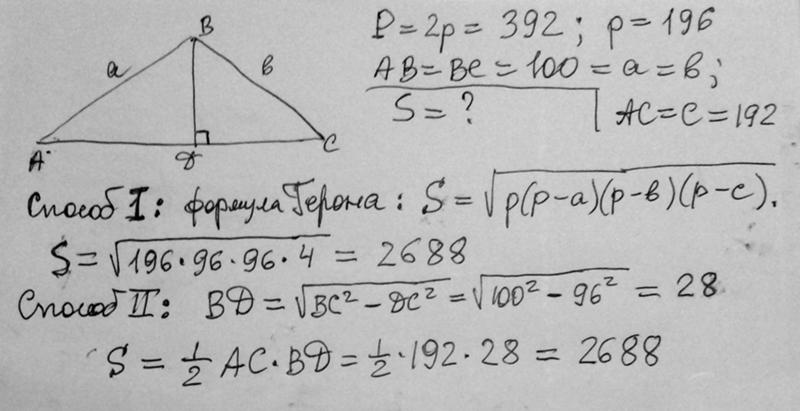 B
a
в
A
D
C
P = 2p = 392; p = 196
AB = BC = 100 = a = в;
S = ?
AC = C = 192
Способ I: формула Герона: S = √p(p-a)(p-в)(p-c).
S = √196·96·96·4 = 2688
Способ II: BD = √BC² - DC² = √100² - 96² = 28
S = 1/2 AC·BD = 1/2·192·28 = 2688